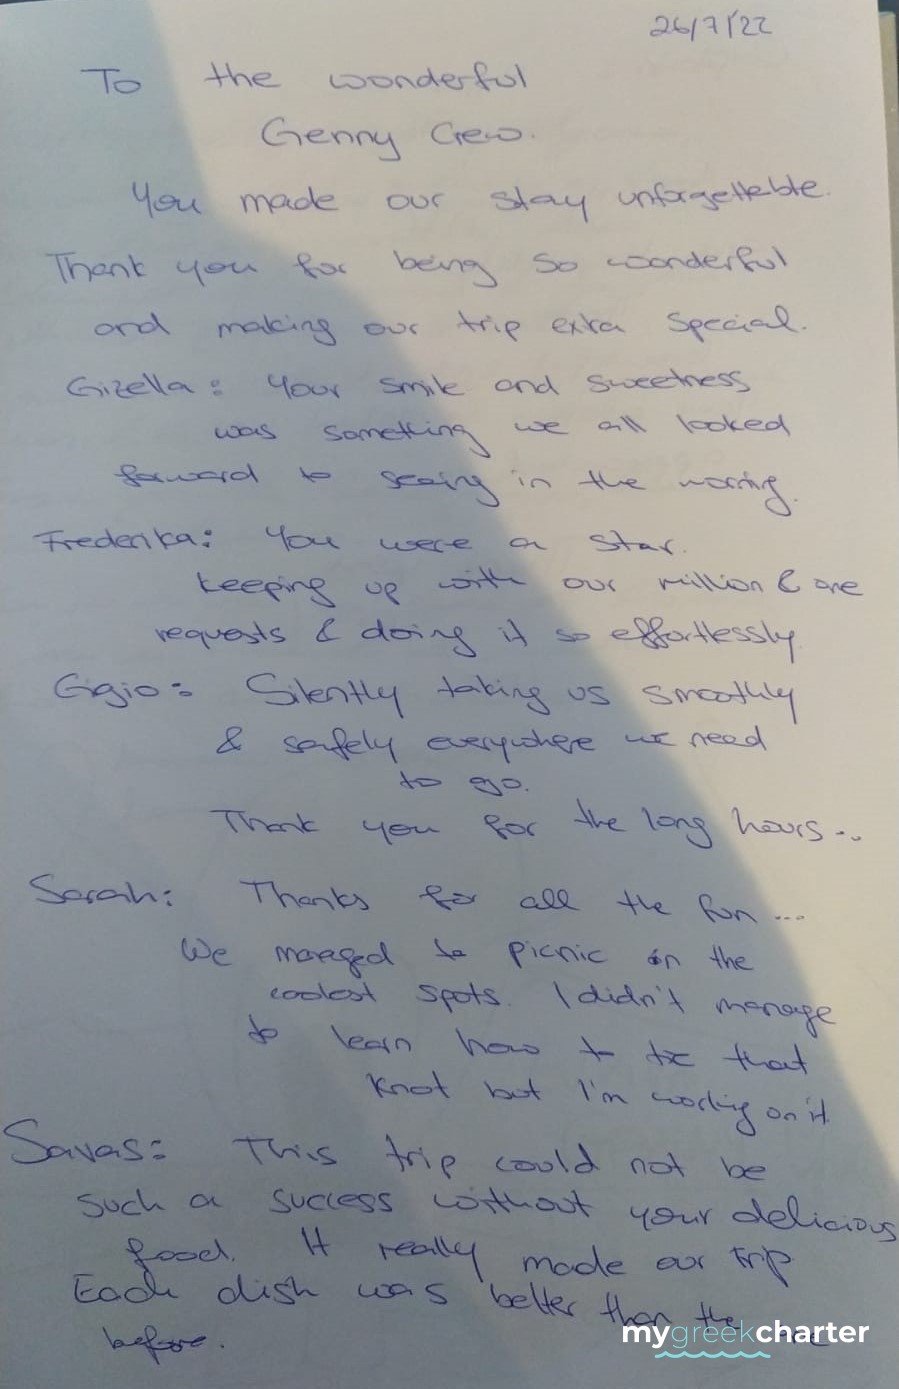 26/7/22
To the wonderful
Genny Crew.
You made our stay unforgettable.
Thank you for being so wonderful
and making our trip extra special.
Gizella: Your smile and sweetness
was something we all looked
forward to seeing in the morning.
Frederika: You were a star.
keeping up with our million & one
requests & doing it so effortlessly.
Gigio: Silently taking us smoothly
& safely everywhere we need
to go.
Thank you for the long hours...
Sarah: Thanks for all the fun...
We managed to picnic in the
coolest spots. I didn't manage
to learn how to tie that
knot but I'm working on it
Savas: This trip could not be
such a success without your delicious
food. It really made our trip
Each dish was better than the
before.
mygreekcharter